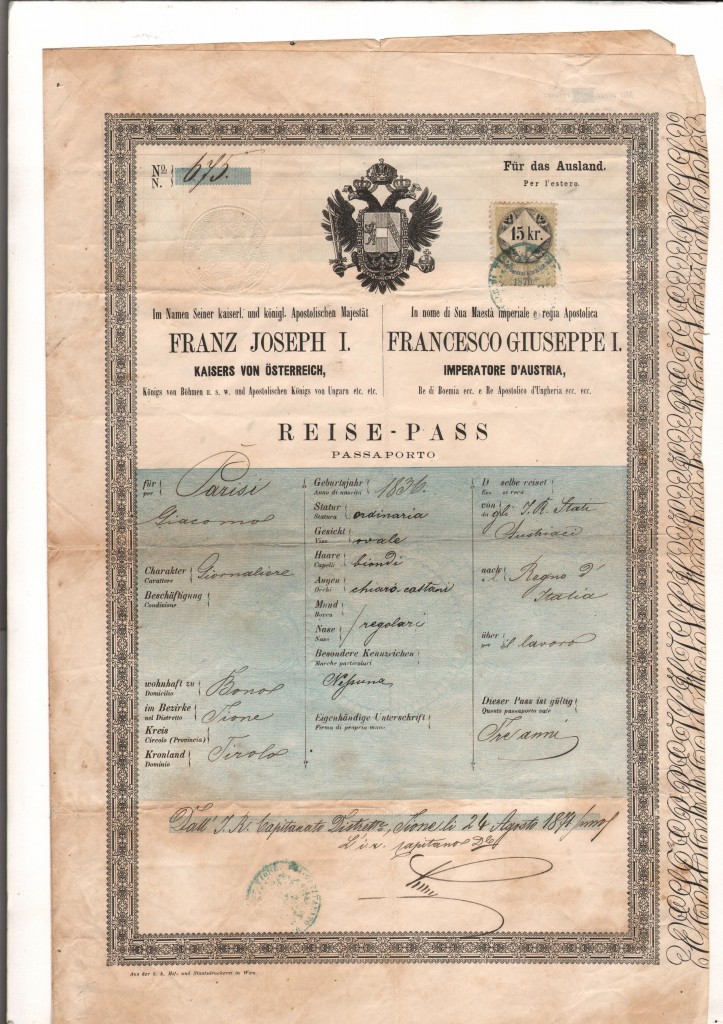 No
N.
675.
Für das Ausland.
Per l'estero.
15 kr.
Im Namen Seiner kaiserl. und königl. Apostolischen Majestät
FRANZ JOSEPH I.
KAISERS VON ÖSTERREICH,
Königs von Böhmen u. s. w. und Apostolischen Königs von Ungarn etc. etc.
In nome di Sua Maestà imperiale e regia Apostolica
FRANCESCO GIUSEPPE I.
IMPERATORE D'AUSTRIA,
Re di Boemia ecc. e Re Apostolico d'Ungheria ecc. ecc.
REISE-PASS
PASSAPORTO
für
per
Parisi
Giacomo
Charakter
Carattere
Giornaliere
Beschäftigung
Condizione
wohnhaft zu
Domicilio
Bono
im Bezirke
nel Distretto
Tione
Kreis
Circolo (Provincia)
Kronland
Dominio
Tirolo
Geburtsjahr
Anno di nascita
1836.
Statur
Statura
ordinaria
Gesicht
Viso
ovale
Haare
Capelli
biondi
Augen
Occhi
chiaro castani
Mund
Bocca
Nase
Naso
regolari
Besondere Kennzeichen
Marche particolari
Nessuna
Eigenhändige Unterschrift
Firma di propria mano
D selbe reiset
von
gli I. R. Stati
Austriaci
nach
Regno d'
Italia
über
per
il lavoro
Dieser Pass ist gültig
Questo passaporto vale
Tre anni
Dall' I. R. Capitanato Distrett. Tione li 24 Agosto
L'i. r. Capitano
Aus der k. k. Hof- und Staatsdruckerei in Wien.